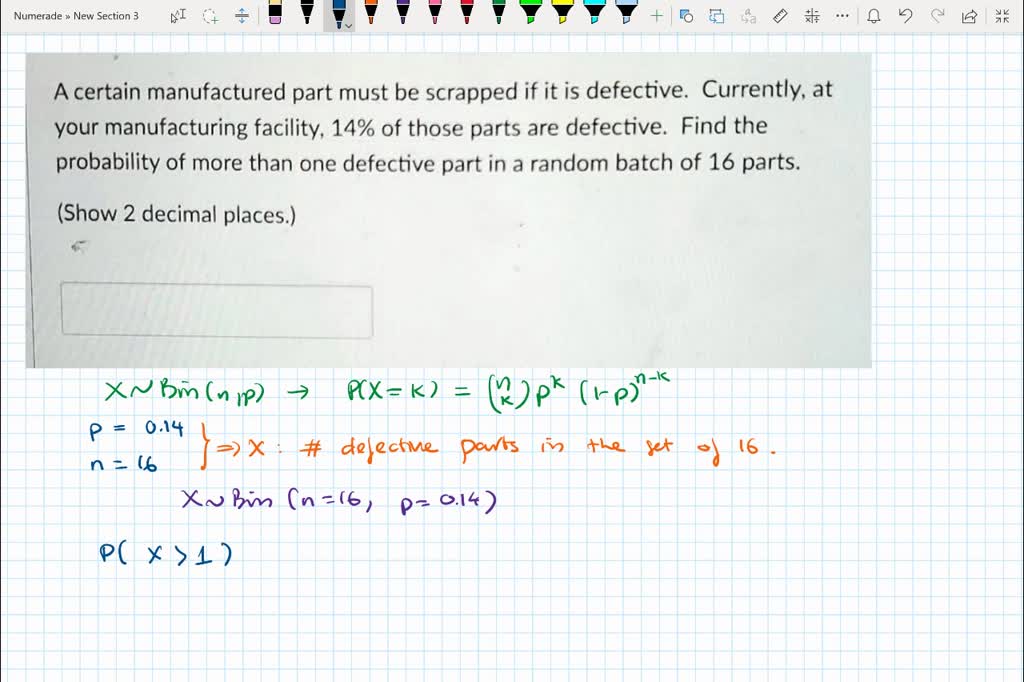 Numerade » New Section 3
A certain manufactured part must be scrapped if it is defective. Currently, at
your manufacturing facility, 14% of those parts are defective. Find the
probability of more than one defective part in a random batch of 16 parts.
(Show 2 decimal places.)
X~Bin(n,p) → P(X=k) = (n k) p^k (1-p)^n-k
p = 0.14
n = 16
} ⇒ X : # defective parts in the set of 16.
X~Bin (n=16, p=0.14)
P( X > 1 )